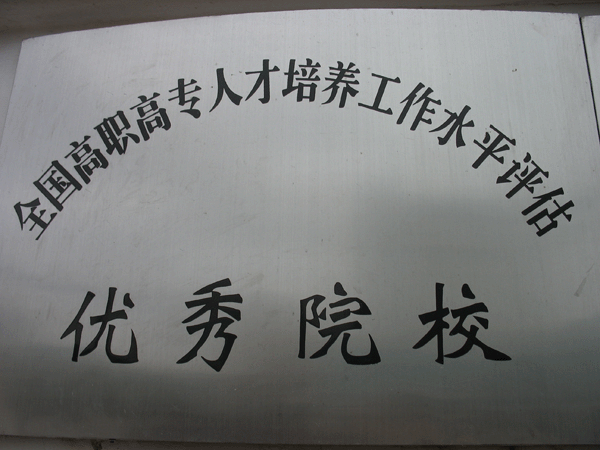 全国高职高专人才培养工作水平评估
优秀院校